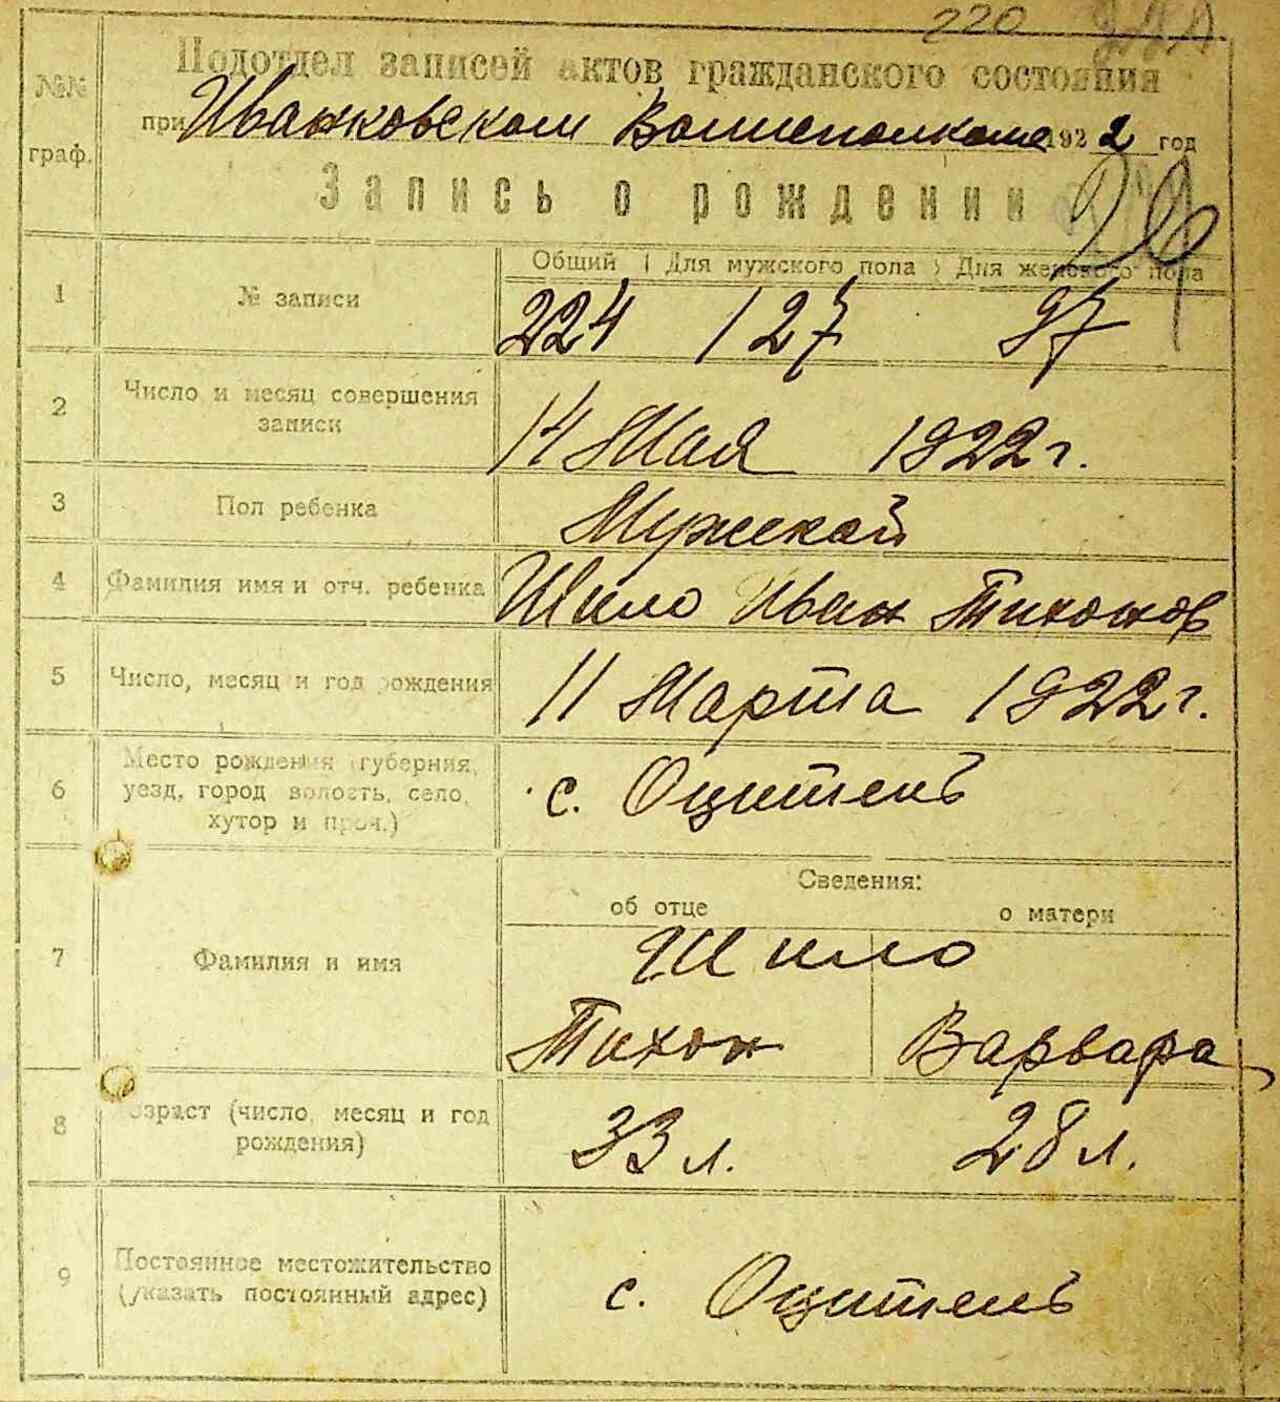 220
№№ граф.
Подотдел записей актов гражданского состояния
при Иванковском Волисполкоме 1922 год
Запись о рождении
Общий Для мужского пола Для женского пола
1 № записи 224 127 97
2 Число и месяц совершения записи 14 Мая 1922 г.
3 Пол ребенка Мужской
4 Фамилия имя и отч. ребенка Шило Иван Тихонов
5 Число, месяц и год рождения 11 Марта 1922 г.
6 Место рождения (губерния, уезд, город волость, село, хутор и проч.) с. Оцитель
Сведения:
об отце о матери
7 Фамилия и имя Шило
Тихон Варвара
8 Возраст (число, месяц и год рождения) 33 л. 28 л.
9 Постоянное местожительство (указать постоянный адрес) с. Оцитель